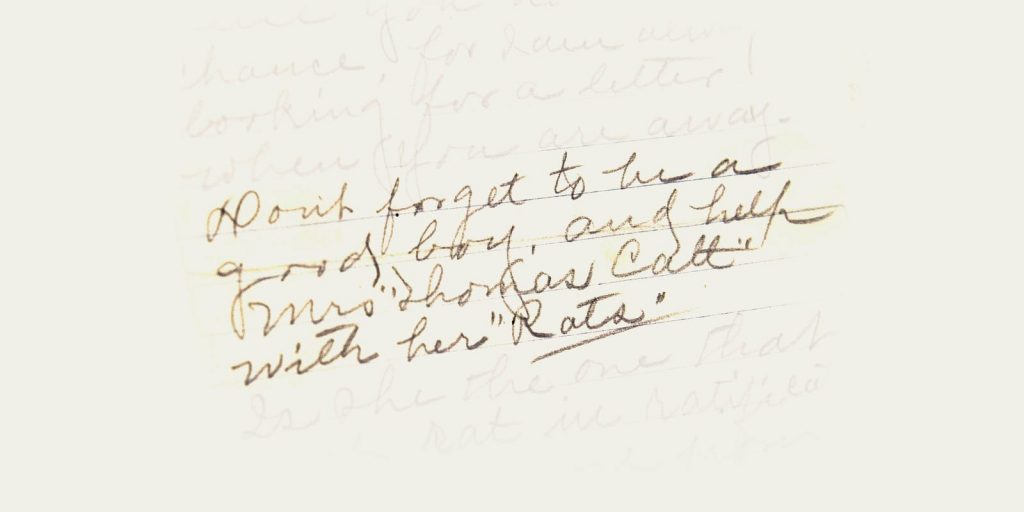 you
chance, for I am
looking for a letter
when you are away.
Dont forget to be a
good boy, and help
Mrs "Thomas Catt"
with her "Rats"
Is she the one that
rat in